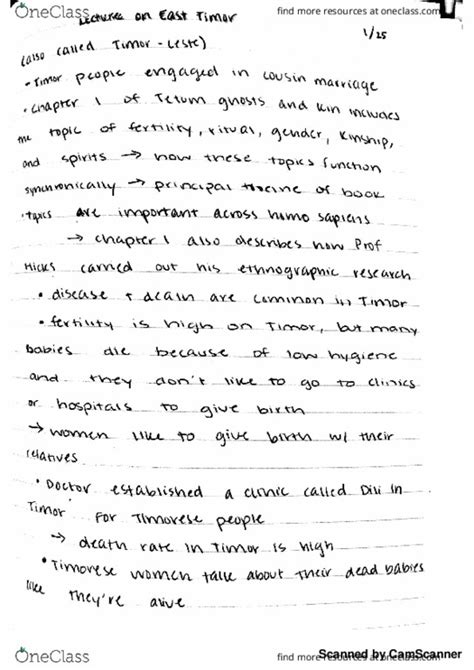 OneClass
find more resources at oneclass.com
find more resources at oneclass.com
Lectures on East Timor
1/25
(also called Timor-Leste)
• Timor people engaged in cousin marriage
• Chapter 1 of Tetum ghosts and kin includes
the topic of fertility, ritual, gender, kinship,
and spirits → how these topics function
synchronically → principal theme of book
• topics are important across homo sapiens
→ chapter 1 also describes how Prof
Hicks carried out his ethnographic research
• disease + death are common in Timor
• fertility is high on Timor, but many
babies die because of low hygiene
and they don't like to go to clinics
or hospitals to give birth
→ women like to give birth w/ their
relatives
• Doctor established a clinic called Dili in
Timor for Timorese people
→ death rate in Timor is high
• Timorese women talk about their dead babies
like they're alive
OneClass
find more resources at oneclass.com
Scanned by CamScanner